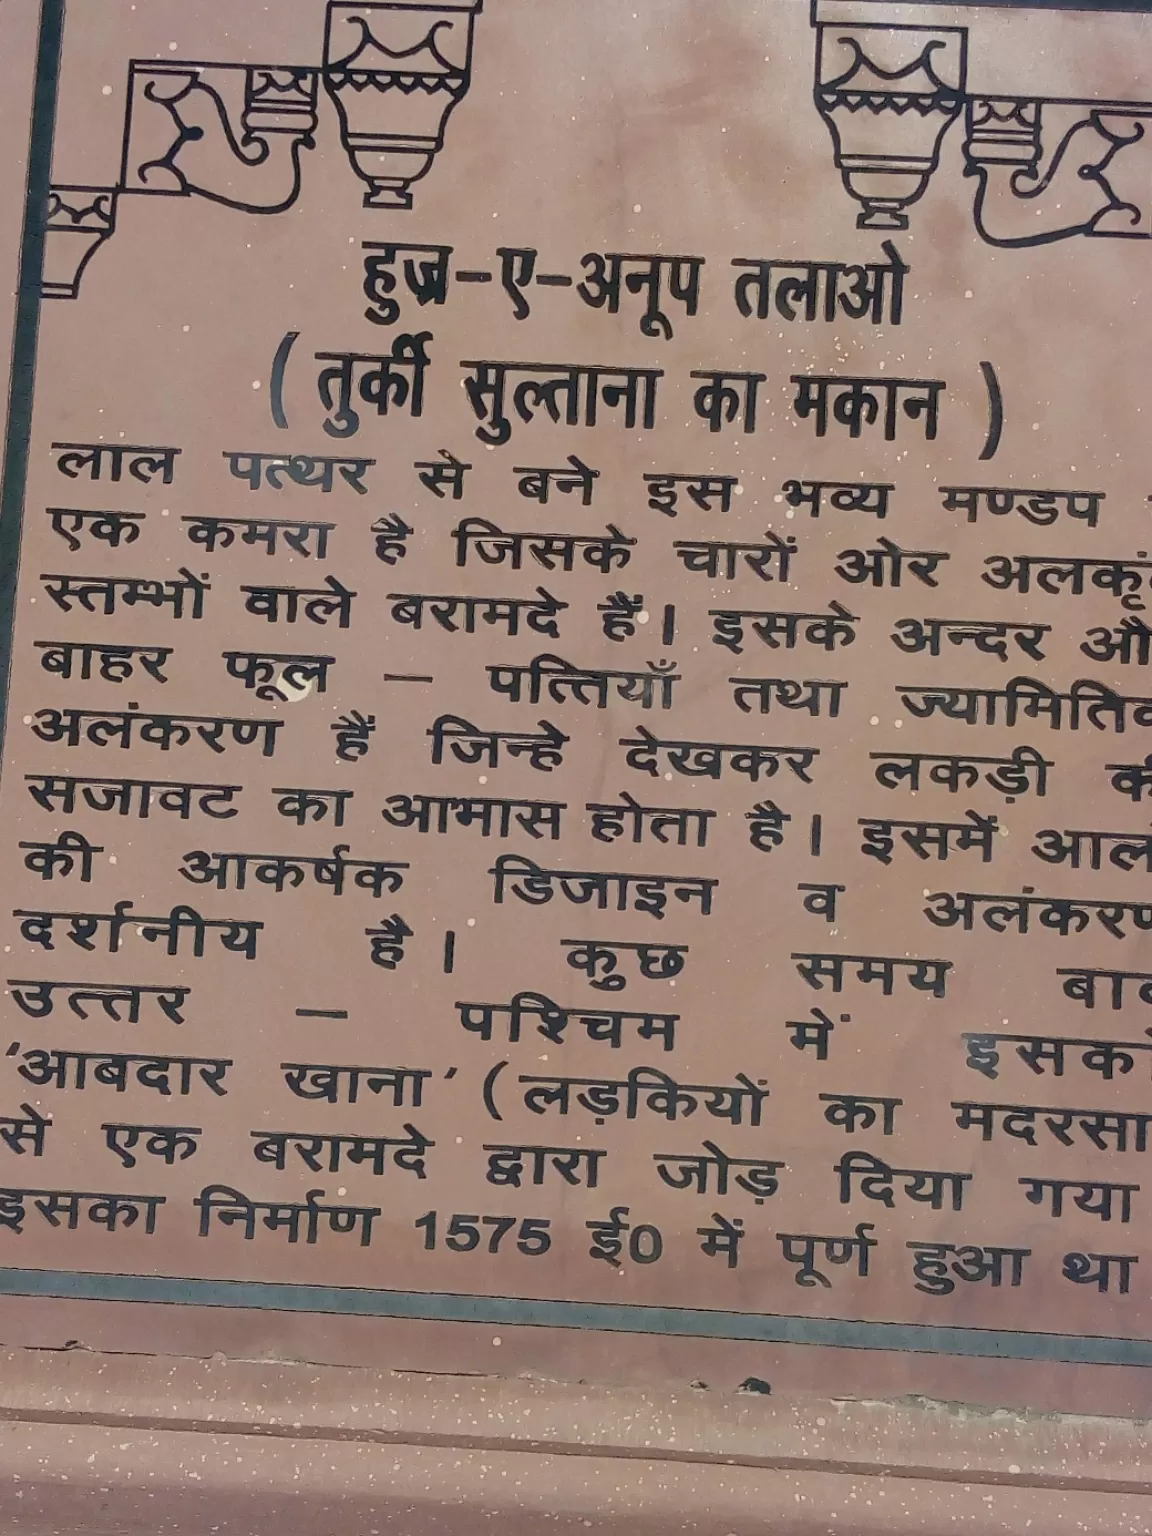 हुज्र-ए-अनूप तलाओ
( तुर्की सुल्ताना का मकान )
लाल पत्थर से बने इस भव्य मण्डप
एक कमरा है जिसके चारों ओर
स्तम्भों वाले बरामदे हैं। इसके अन्दर
बाहर फूल – पत्तियाँ तथा
अलंकरण हैं जिन्हे देखकर लकड़ी
सजावट का आभास होता है। इसमें
की आकर्षक डिजाइन व
दर्शनीय है। कुछ समय
उत्तर – पश्चिम में
'आबदार खाना' (लड़कियों का मदरसा
से एक बरामदे द्वारा जोड़ दिया गया
इसका निर्माण 1575 ई0 में पूर्ण हुआ था